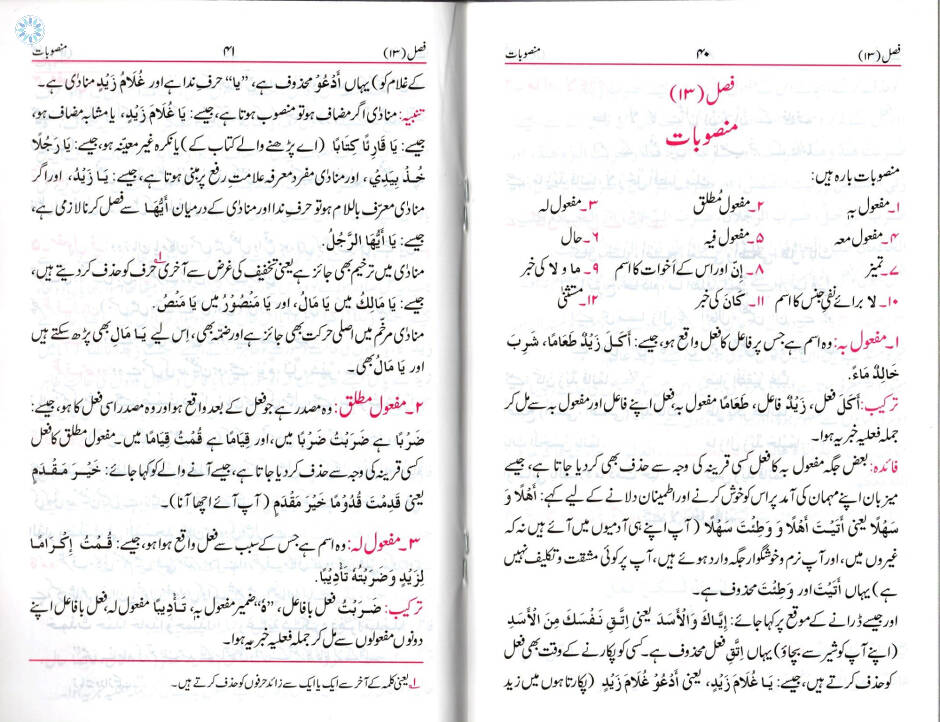 فصل (۱۳) ۴۰ منصوبات
فصل (۱۳)
منصوبات
منصوبات بارہ ہیں:
۱۔ مفعول بہ ۲۔ مفعول مطلق ۳۔ مفعول لہ
۴۔ مفعول معہ ۵۔ مفعول فیہ ۶۔ حال
۷۔ تمیز ۸۔ إنّ اور اس کے أخوات کا اسم ۹۔ ما و لا کی خبر
۱۰۔ لا برائے نفی جنس کا اسم ۱۱۔ کَانَ کی خبر ۱۲۔ مستثنٰی
۱۔ مفعول بہ: وہ اسم ہے جس پر فاعل کا فعل واقع ہو، جیسے: أَكَلَ زَيْدٌ طَعَامًا، شَرِبَ
خَالِدٌ مَاءً.
ترکیب: أَكَلَ فعل، زَيْدٌ فاعل، طَعَامًا مفعول بہ، فعل اپنے فاعل اور مفعول بہ سے مل کر
جملہ فعلیہ خبریہ ہوا۔
فائدہ: بعض جگہ مفعول بہ کا فعل کسی قرینہ کی وجہ سے حذف بھی کردیا جاتا ہے، جیسے
میزبان اپنے مہمان کی آمد پر اس کو خوش کرنے اور اطمینان دلانے کے لیے کہے: أَهْلًا وَ
سَهْلًا یعنی أَتَيْتَ أَهْلًا وَ وَطِئْتَ سَهْلًا (آپ اپنے ہی آدمیوں میں آئے ہیں نہ کہ
غیروں میں، اور آپ نرم و خوشگوار جگہ وارد ہوئے ہیں، آپ پر کوئی مشقت و تکلیف نہیں
ہے) یہاں أَتَيْتَ اور وَطِئْتَ محذوف ہے۔
اور جیسے ڈرانے کے موقع پر کہا جائے: إِيَّاكَ وَالْأَسَدَ یعنی اِتَّقِ نَفْسَكَ مِنَ الْأَسَدِ
(اپنے آپ کو شیر سے بچاؤ) یہاں اِتَّقِ فعل محذوف ہے۔ کسی کو پکارنے کے وقت بھی فعل
کو حذف کرتے ہیں، جیسے: يَا غُلَامَ زَيْدٍ، یعنی أَدْعُوْ غُلَامَ زَيْدٍ (پکارتا ہوں میں زید
فصل (۱۳) ۴۱ منصوبات
کے غلام کو) یہاں أَدْعُوْ محذوف ہے، ”یا“ حرفِ ندا ہے اور غُلَامُ زَيْدٍ منادٰی ہے۔
تنبیہ: منادٰی اگر مضاف ہو تو منصوب ہوتا ہے، جیسے: يَا غُلَامَ زَيْدٍ، یا مشابہ مضاف ہو،
جیسے: يَا قَارِئًا كِتَابًا (اے پڑھنے والے کتاب کے) یا نکرہ غیر معیّنہ ہو، جیسے: يَا رَجُلًا
خُذْ بِيَدِيْ، اور منادٰی مفرد معرفہ علامتِ رفع پر مبنی ہوتا ہے، جیسے: يَا زَيْدُ، اور اگر
منادٰی معرّف باللام ہو تو حرفِ ندا اور منادٰی کے درمیان أَيُّهَا سے فصل کرنا لازمی ہے،
جیسے: يَا أَيُّهَا الرَّجُلُ.
منادٰی میں ترخیم بھی جائز ہے یعنی تخفیف کی غرض سے آخری حرف۱؎ کو حذف کردیتے ہیں،
جیسے: يَا مَالِكُ میں يَا مَالُ، اور يَا مَنْصُوْرُ میں يَا مَنْصُ.
منادٰی مرخّم میں اصلی حرکت بھی جائز ہے اور ضمّہ بھی، اس لیے يَا مَالِ بھی پڑھ سکتے ہیں
اور يَا مَالُ بھی۔
۲۔ مفعول مطلق: وہ مصدر ہے جو فعل کے بعد واقع ہو اور وہ مصدر اسی فعل کا ہو، جیسے:
ضَرْبًا ہے ضَرَبْتُ ضَرْبًا میں، اور قِيَامًا ہے قُمْتُ قِيَامًا میں۔ مفعول مطلق کا فعل
کسی قرینہ کی وجہ سے حذف کردیا جاتا ہے، جیسے آنے والے کو کہا جائے: خَيْرَ مَقْدَمٍ
یعنی قَدِمْتَ قُدُوْمًا خَيْرَ مَقْدَمٍ (آپ آئے اچھا آنا)۔
۳۔ مفعول لہ: وہ اسم ہے جس کے سبب سے فعل واقع ہوا ہو، جیسے: قُمْتُ إِكْرَامًا
لِزَيْدٍ وَضَرَبْتُهٗ تَأْدِيْبًا.
ترکیب: ضَرَبْتُ فعل با فاعل، ”هٗ“ ضمیر مفعول بہ، تَأْدِيْبًا مفعول لہ، فعل با فاعل اپنے
دونوں مفعولوں سے مل کر جملہ فعلیہ خبریہ ہوا۔
۱؎ یعنی کلمہ کے آخر سے ایک یا ایک سے زائد حرفوں کو حذف کرتے ہیں۔